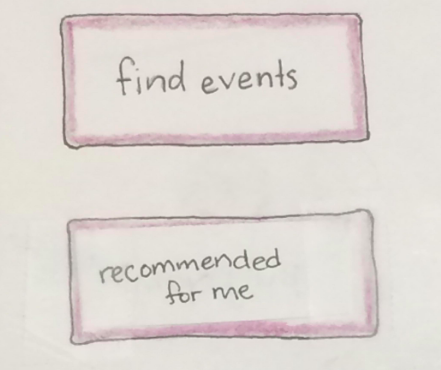 find events
recommended
for me